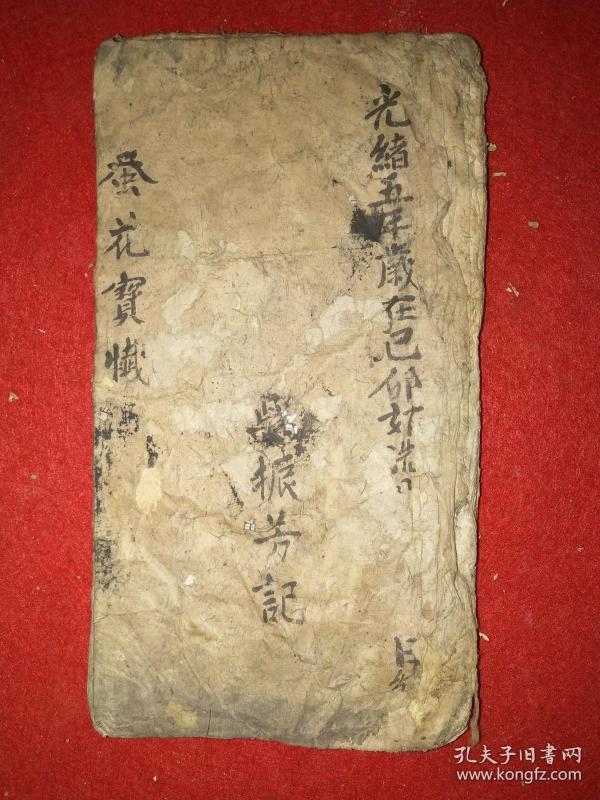 光緒五年歲在己卯
振芳記
蚕花寶懺
孔夫子旧书网
www.kongfz.com